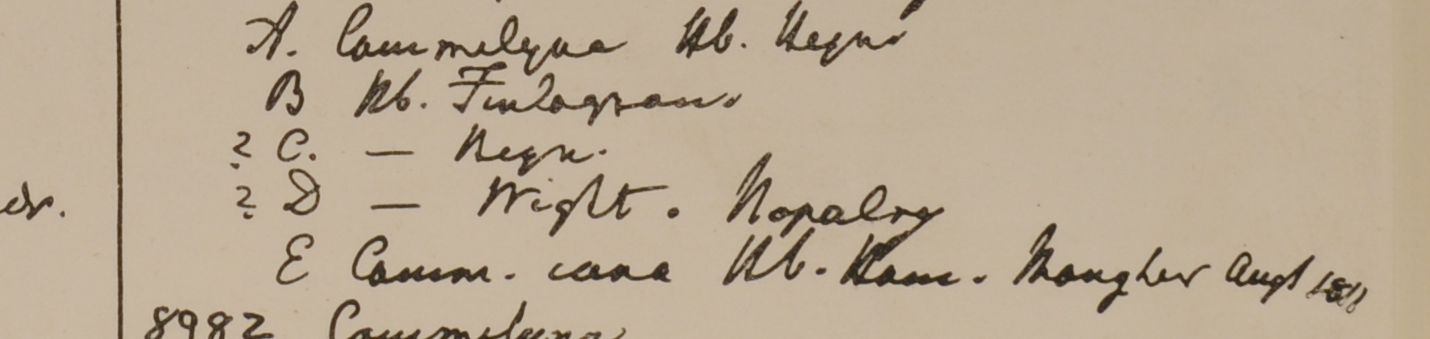 A. Commelyna Hb. Heyn.
B Hb. Finlayson.
? C. — Heyn.
? D — Wight. Nopalry
dr.
E Comm. cana Hb. Ham. Mongher Augt 1811
8982 Commelyna